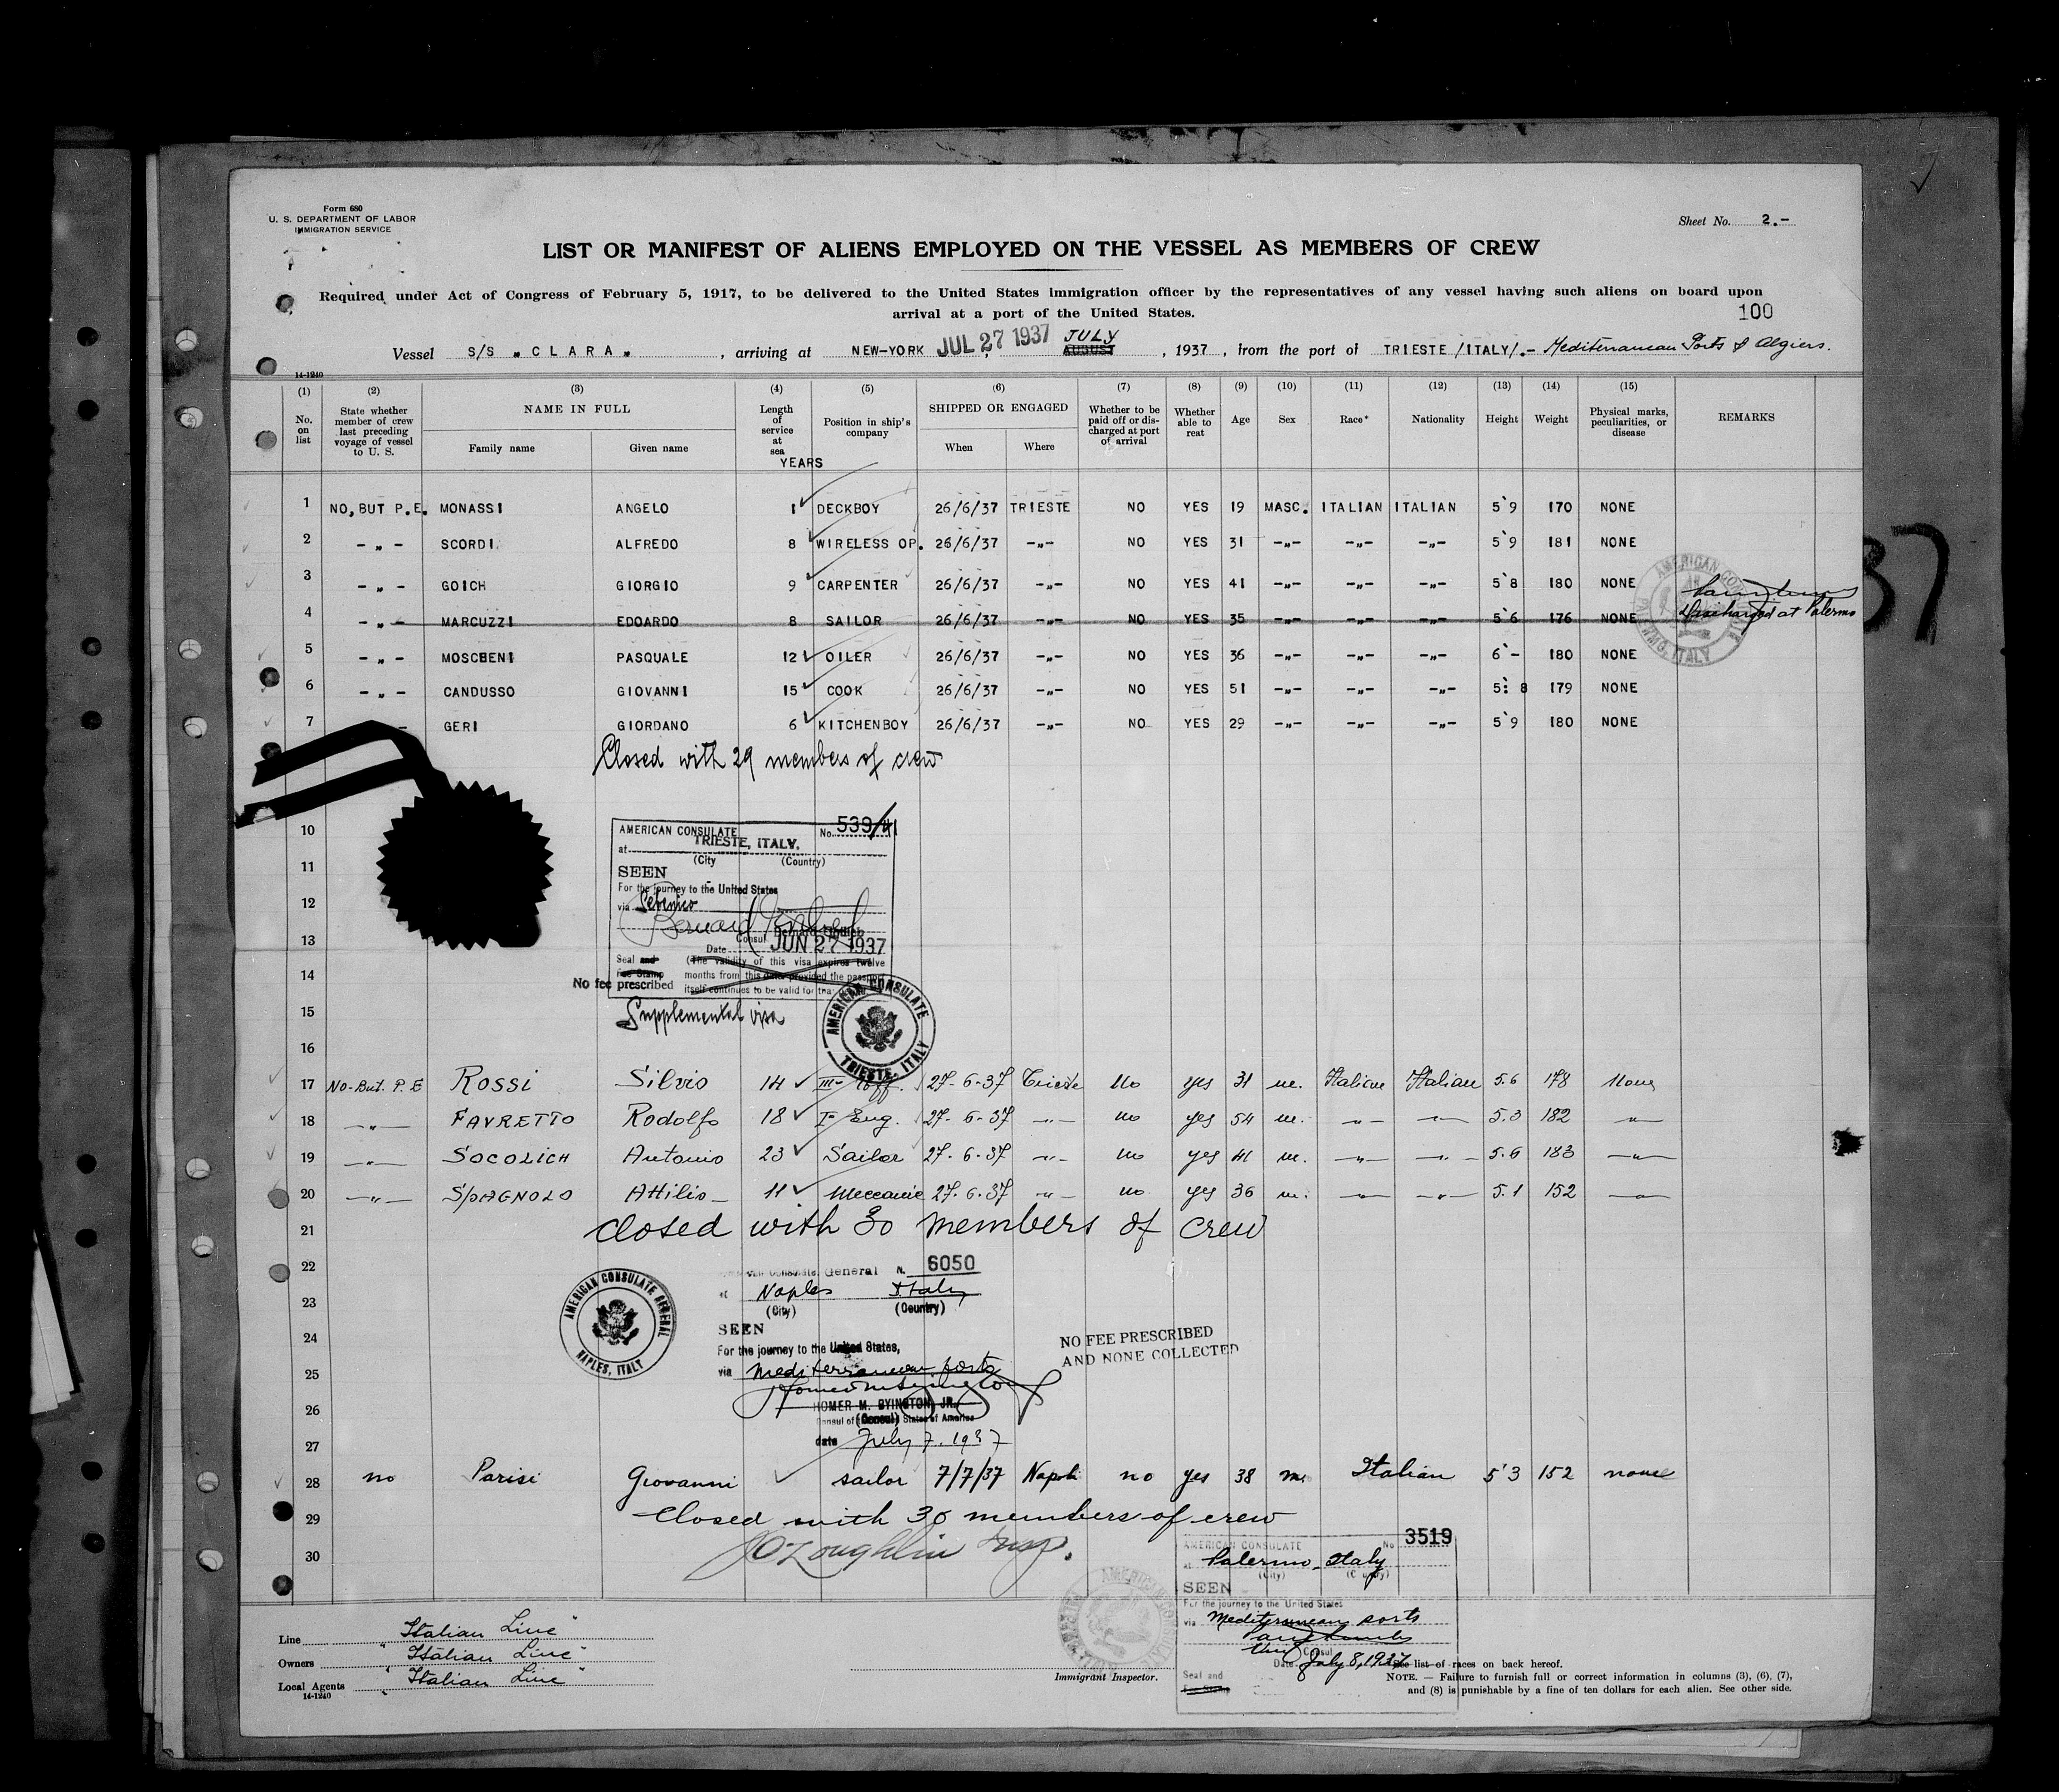 Form 680
U. S. DEPARTMENT OF LABOR
IMMIGRATION SERVICE
Sheet No. 2.-
LIST OR MANIFEST OF ALIENS EMPLOYED ON THE VESSEL AS MEMBERS OF CREW
Required under Act of Congress of February 5, 1917, to be delivered to the United States immigration officer by the representatives of any vessel having such aliens on board upon
arrival at a port of the United States.
100
Vessel S/S „CLARA„ , arriving at NEW-YORK JUL 27 1937 , AUGUST JULY , 1937 , from the port of TRIESTE /ITALY/.- Mediterranean Ports & Algiers.
14-1240
(1) (2) (3) (4) (5) (6) (7) (8) (9) (10) (11) (12) (13) (14) (15)
No. on list State whether member of crew last preceding voyage of vessel to U. S. NAME IN FULL Family name Given name Length of service at sea YEARS Position in ship's company SHIPPED OR ENGAGED When Where Whether to be paid off or discharged at port of arrival Whether able to reat Age Sex Race* Nationality Height Weight Physical marks, peculiarities, or disease REMARKS
1 NO, BUT P.E. MONASSI ANGELO 1 DECKBOY 26/6/37 TRIESTE NO YES 19 MASC. ITALIAN ITALIAN 5`9 170 NONE
2 -„- SCORDI ALFREDO 8 WIRELESS OP. 26/6/37 -„- NO YES 31 -„- -„- -„- 5`9 181 NONE
3 -„- GOICH GIORGIO 9 CARPENTER 26/6/37 -„- NO YES 41 -„- -„- -„- 5`8 180 NONE
4 -„- MARCUZZI EDOARDO 8 SAILOR 26/6/37 -„- NO YES 35 -„- -„- -„- 5`6 176 NONE Discharged at Palermo
AMERICAN CONSULATE PALERMO, ITALY
37
5 -„- MOSCHENI PASQUALE 12 OILER 26/6/37 -„- NO YES 36 -„- -„- -„- 6`- 180 NONE
6 -„- CANDUSSO GIOVANNI 15 COOK 26/6/37 -„- NO YES 51 -„- -„- -„- 5: 8 179 NONE
7 - GERI GIORDANO 6 KITCHENBOY 26/6/37 -„- NO YES 29 -„- -„- -„- 5`9 180 NONE
Closed with 29 members of crew
10
AMERICAN CONSULATE No. 539/41
at TRIESTE, ITALY.
(City (Country)
11
SEEN
For the journey to the United States
12
via Sebenico
13
Consul
Date JUN 27 1937
Seal and (The validity of this visa expires twelve
14
Fee Stamp months from this date provided the passport
No fee prescribed itself continues to be valid for that
15
Supplemental visa
AMERICAN CONSULATE TRIESTE, ITALY
16
17 No-But. P. E Rossi Silvio 14 III- off. 27-6-37 Trieste No yes 31 m. Italian Italian 5.6 178 None
18 -„- FAVRETTO Rodolfo 18 I- Eng. 27-6-37 -„- no yes 54 m. -„- -„- 5.3 182 -„-
19 -„- SOCOLICH Antonio 23 Sailor 27-6-37 -„- no yes 41 m. -„- -„- 5.6 183 -„-
20 -„- SPAGNOLO Attilio- 11 Meccanic 27-6-37 -„- no yes 36 m. -„- -„- 5.1 152 -„-
21 closed with 30 members of crew
22
General N. 6050
at Naples Italy
23
(City) (Country)
AMERICAN CONSULATE GENERAL NAPLES, ITALY
24
SEEN
For the journey to the United States,
NO FEE PRESCRIBED
AND NONE COLLECTED
25
via mediterranean ports
26
HOMER M. BYINGTON, JR.
Consul of (Consul) States of America
27
date July 7. 1937
28 no Parisi Giovanni sailor 7/7/37 Napoli no yes 38 m. Italian 5'3 152 none
29 Closed with 30 members of crew
30 JO'Loughlin Insp.
AMERICAN CONSULATE No 3519
at Palermo, Italy
(City) (Country)
SEEN
For the journey to the United States
via Mediterranean ports
Consul
Date July 8, 1937
Seal and
Line "Italian Line"
Owners "Italian Line"
Local Agents "Italian Line"
14-1240
Immigrant Inspector.
See list of races on back hereof.
NOTE. — Failure to furnish full or correct information in columns (3), (6), (7),
and (8) is punishable by a fine of ten dollars for each alien. See other side.